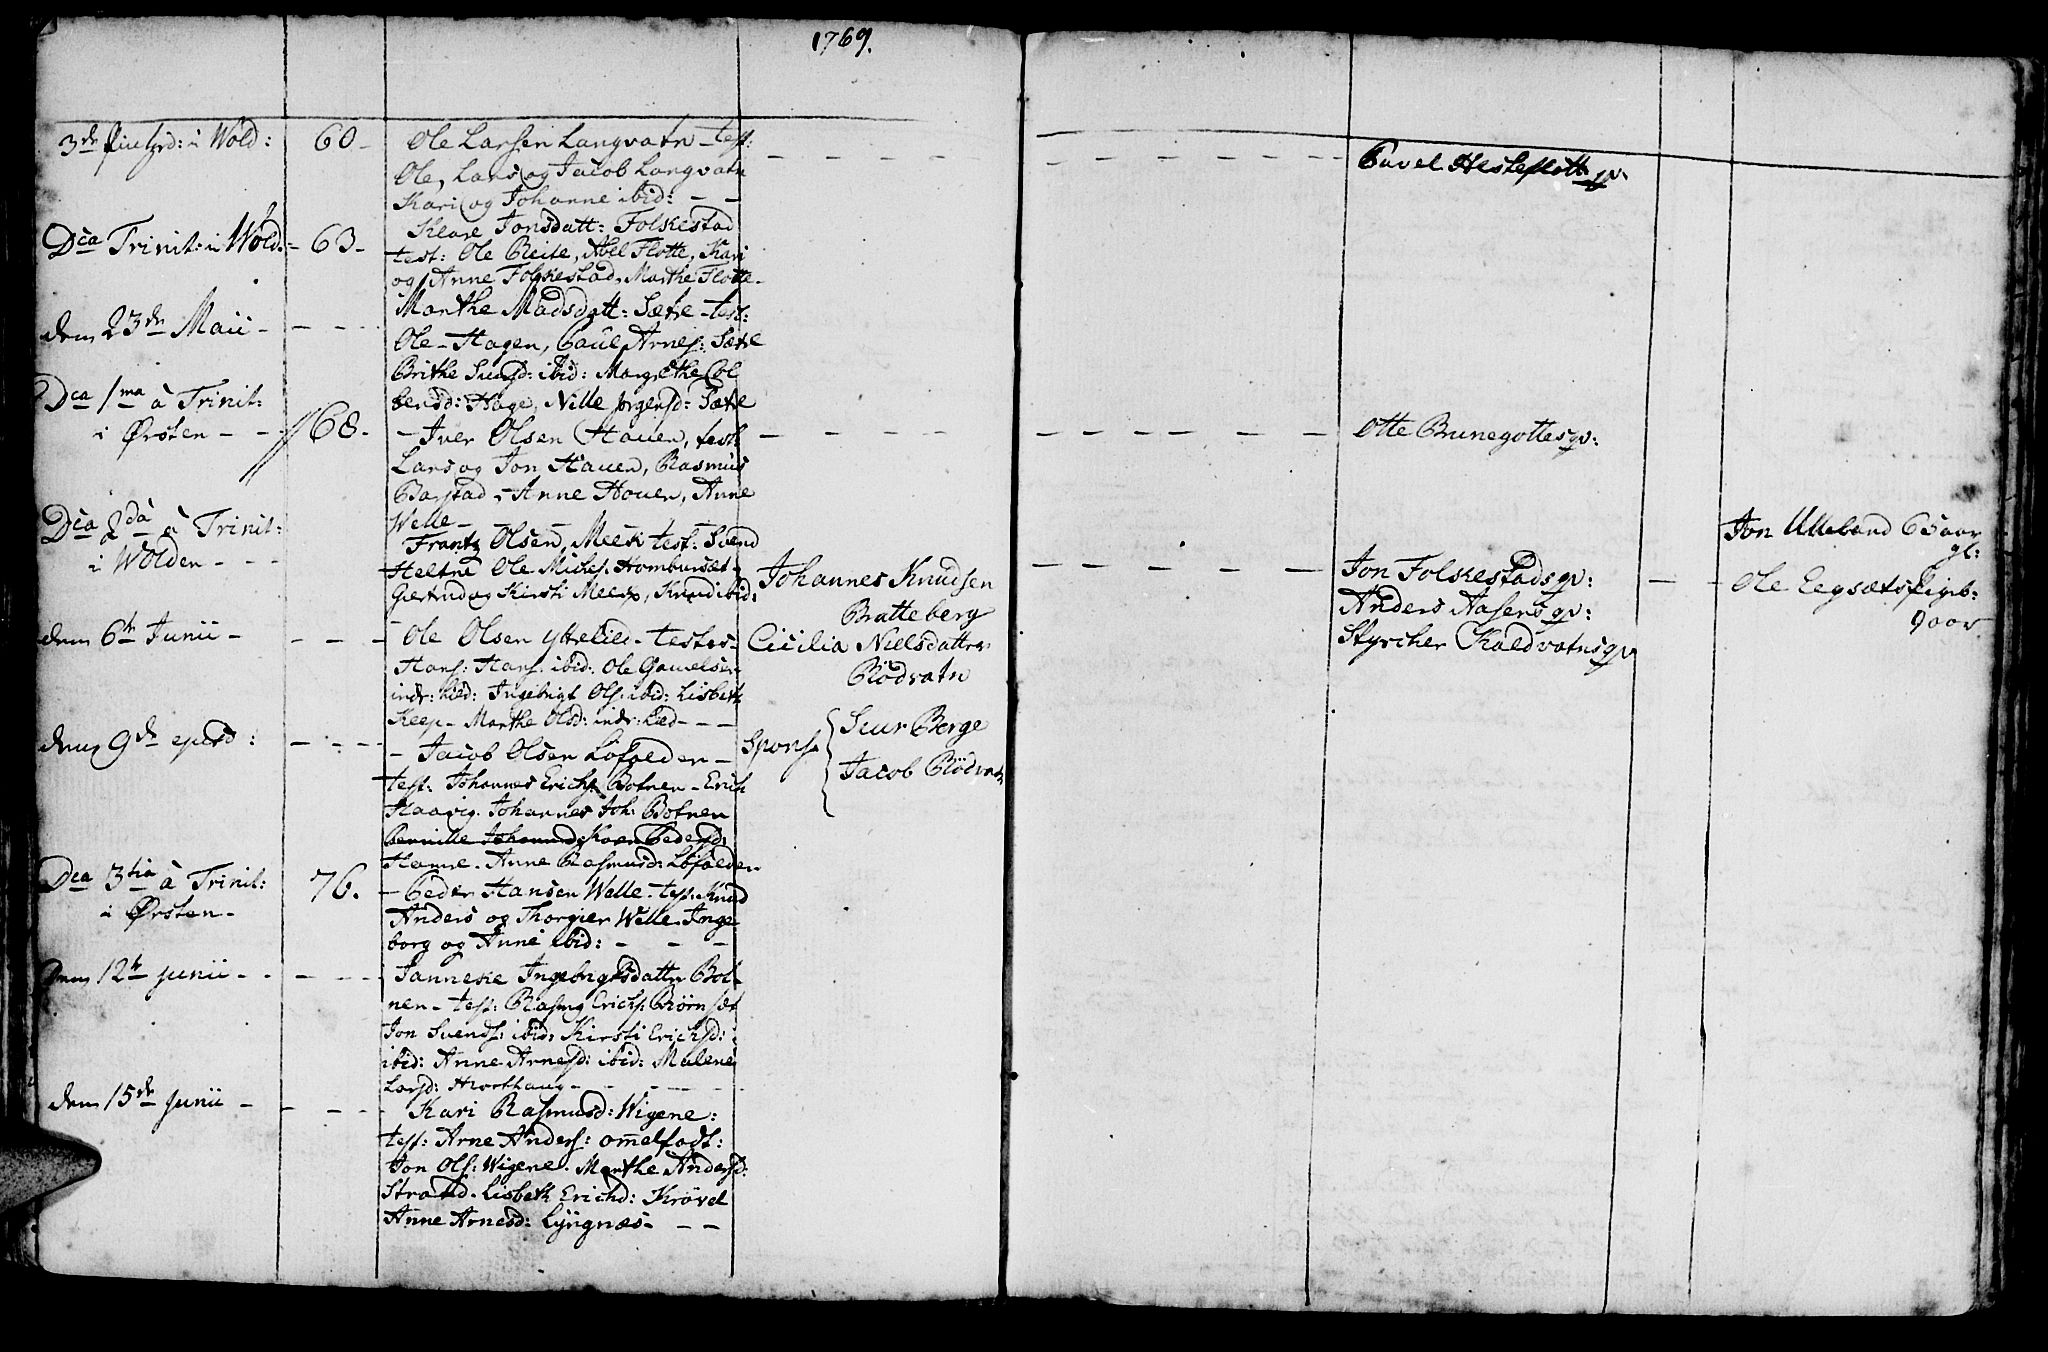 1769.
3de i Wold:
60-
Ole Larsen Langvatn - test:
Ole, Lars og Jacob Langvatn
Kari og Johanne ibid:
Pavel Hesteflott qv.
Dca Trinit: i Wold.
63-
Klare Jonsdatt: Folkestad
test: Ole Reite, Abel Flotte, Kari
og Anne Folkestad, Marthe Flotte
dem 23de Maii -
Marthe Madsdatt: Sætre - test:
Ole - Hagen, Paul Arnes: Sætre
Brithe ibid: Margrethe Col
bensd: Hage, Nille Jørgensd: Sætre
Dca 1ma à Trinit:
i Ørsten -
68-
- Iver Olsen Hauen, test:
Lars og Jon Hauen, Rasmus
Barstad, Anne Houen, Anne
Welle -
Otte Brunegottes qv:
Dca 2da à Trinit:
i Wolden -
Frantz Olsen Meek test: Svend
Heltne Ole Miches. Hombursæt -
Giertrud og Kirsti Meek, Knud ibid:
Johannes Knudsen
Bratteberg
Cicilia Nielsdatter
Rödvatn
Spons {
Siur Berge
Jacob Rödvatn
Jon Folkestads qv:
Anders Aasens qv:
Styrcher Kaldvatns qv
Jon Ulleland 65 aar
gl:
Ole Eegsæts Pigeb:
9 aar
dem 6te Junii -
Ole Olsen Ytrelied - testes -
Hans: Hans. ibid: Ole Gamelsen
indr: Lied: Ingebrigt Ols: ibid: Lisbeth
Keep - Marthe Olsd: indr: Lied -
dem 9de ejusd:
- Jacob Olsen Löfolden -
test: Johannes Erichs: Botnen - Erich
Haavig. Johannes Joh: Botnen
Pernille Johannsd: Koen Pedersd:
Hamre. Anne Rasmusd: Löfolden
Dca 3tia à Trinit:
i Ørsten -
76.
- Peder Hansen Welle - test: Knud
Anders og Thorgier Welle. Inge
borg og Anne ibid:
dem 12te Junii -
Janneke Ingebrigtsdatter Bot-
nen - test: Rasmus Erichs: Biörnsæt
Jon Svends: ibid: Kirsti Erichsd:
ibid: Anne Arnesd: ibid: Malene
Larsd: Hiorthaug -
dem 15de Junii -
Kari Rasmusd: Wigene:
test: Arne Anders: Ommelfodt:
Jon Ols: Wigene. Marthe Andersd:
Strand. Lisbeth Erichd: Krövel
Anne Arnesd: Lyngnæs -